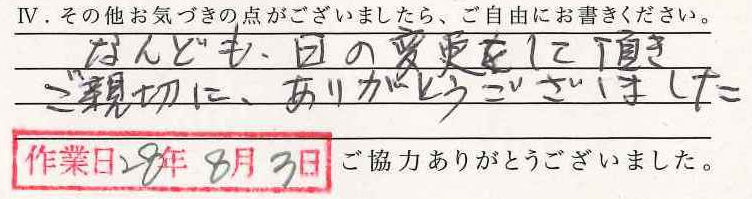 Ⅳ．その他お気づきの点がございましたら、ご自由にお書きください。
なんども、日の変更をして頂き
ご親切に、ありがとうございました
作業日28年8月3日 ご協力ありがとうございました。